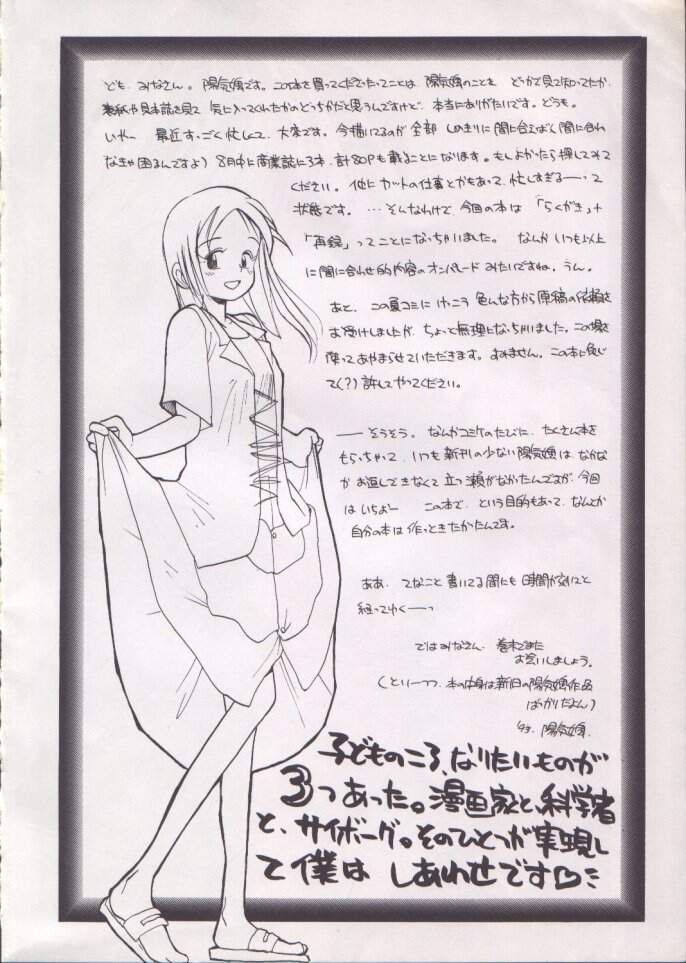 ども、みなさん。陽気婢です。この本を買ってくださったってことは、陽気婢のことを どっかで見て知ってたか、
表紙や見本誌を見て 気に入ってくれたかのどっちかだと思うんですけど、本当にありがたいです。どうも。
いやー 最近すっごく忙しくて、大変です。今描いてるのが全部 しめきりに間に合えばく間に合わ
なきゃ困るんですよ) 8月中に商業誌に3本、計80Pも載ることになります。もしよかったら探してみて
ください。他にカットの仕事とかもあって、忙しすぎる――って
状態です。…そんなわけで、今回の本は「らくがき」+
「再録」ってことになっちゃいました。なんか いつも以上
に間に合わせ的内容のオンパレードみたいですね。うん。
あと、この夏コミにけっこう色んな方から原稿の依頼を
お受けしましたが、ちょっと無理になっちゃいました。この場を
借りてあやまらせていただきます。すみません。この本に免じ
て(?)許してやってください。
――そうそう。なんかコミケのたびに、たくさん本を
もらっちゃって、いつも新刊の少ない陽気婢は、なかな
かお返しできなくて立つ瀬がなかったんですが、今回
はいちおー この本で、という目的もあって、なんとか
自分の本は作っときたかったんです。
ああ、てなこと書いてる間にも時間が刻々と
経ってゆくーっ
ではみなさん、巻末でまた
お会いしましょう。
(といいつつ、本の中身は新旧の陽気婢作品
ばっかりだよん)
'93. 陽気婢.
子どものころ、なりたいものが
3つあった。漫画家と、科学者
と、サイボーグ。そのひとつが実現し
て僕は しあわせです♡